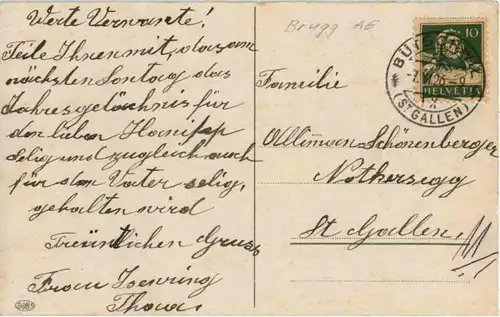 Werte Verwante!
Teile Ihnen mit, das am
nächsten Sontag das
Jahresgetächnis für
den lieben
Selig und zugleich auch
für den Vater selig,
gehalten wird
Freuntlichen Gruss
Frau
Brugg AG
10
HELVETIA
(ST GALLEN)
Familie
Schönenberger
Notkersegg
St Gallen